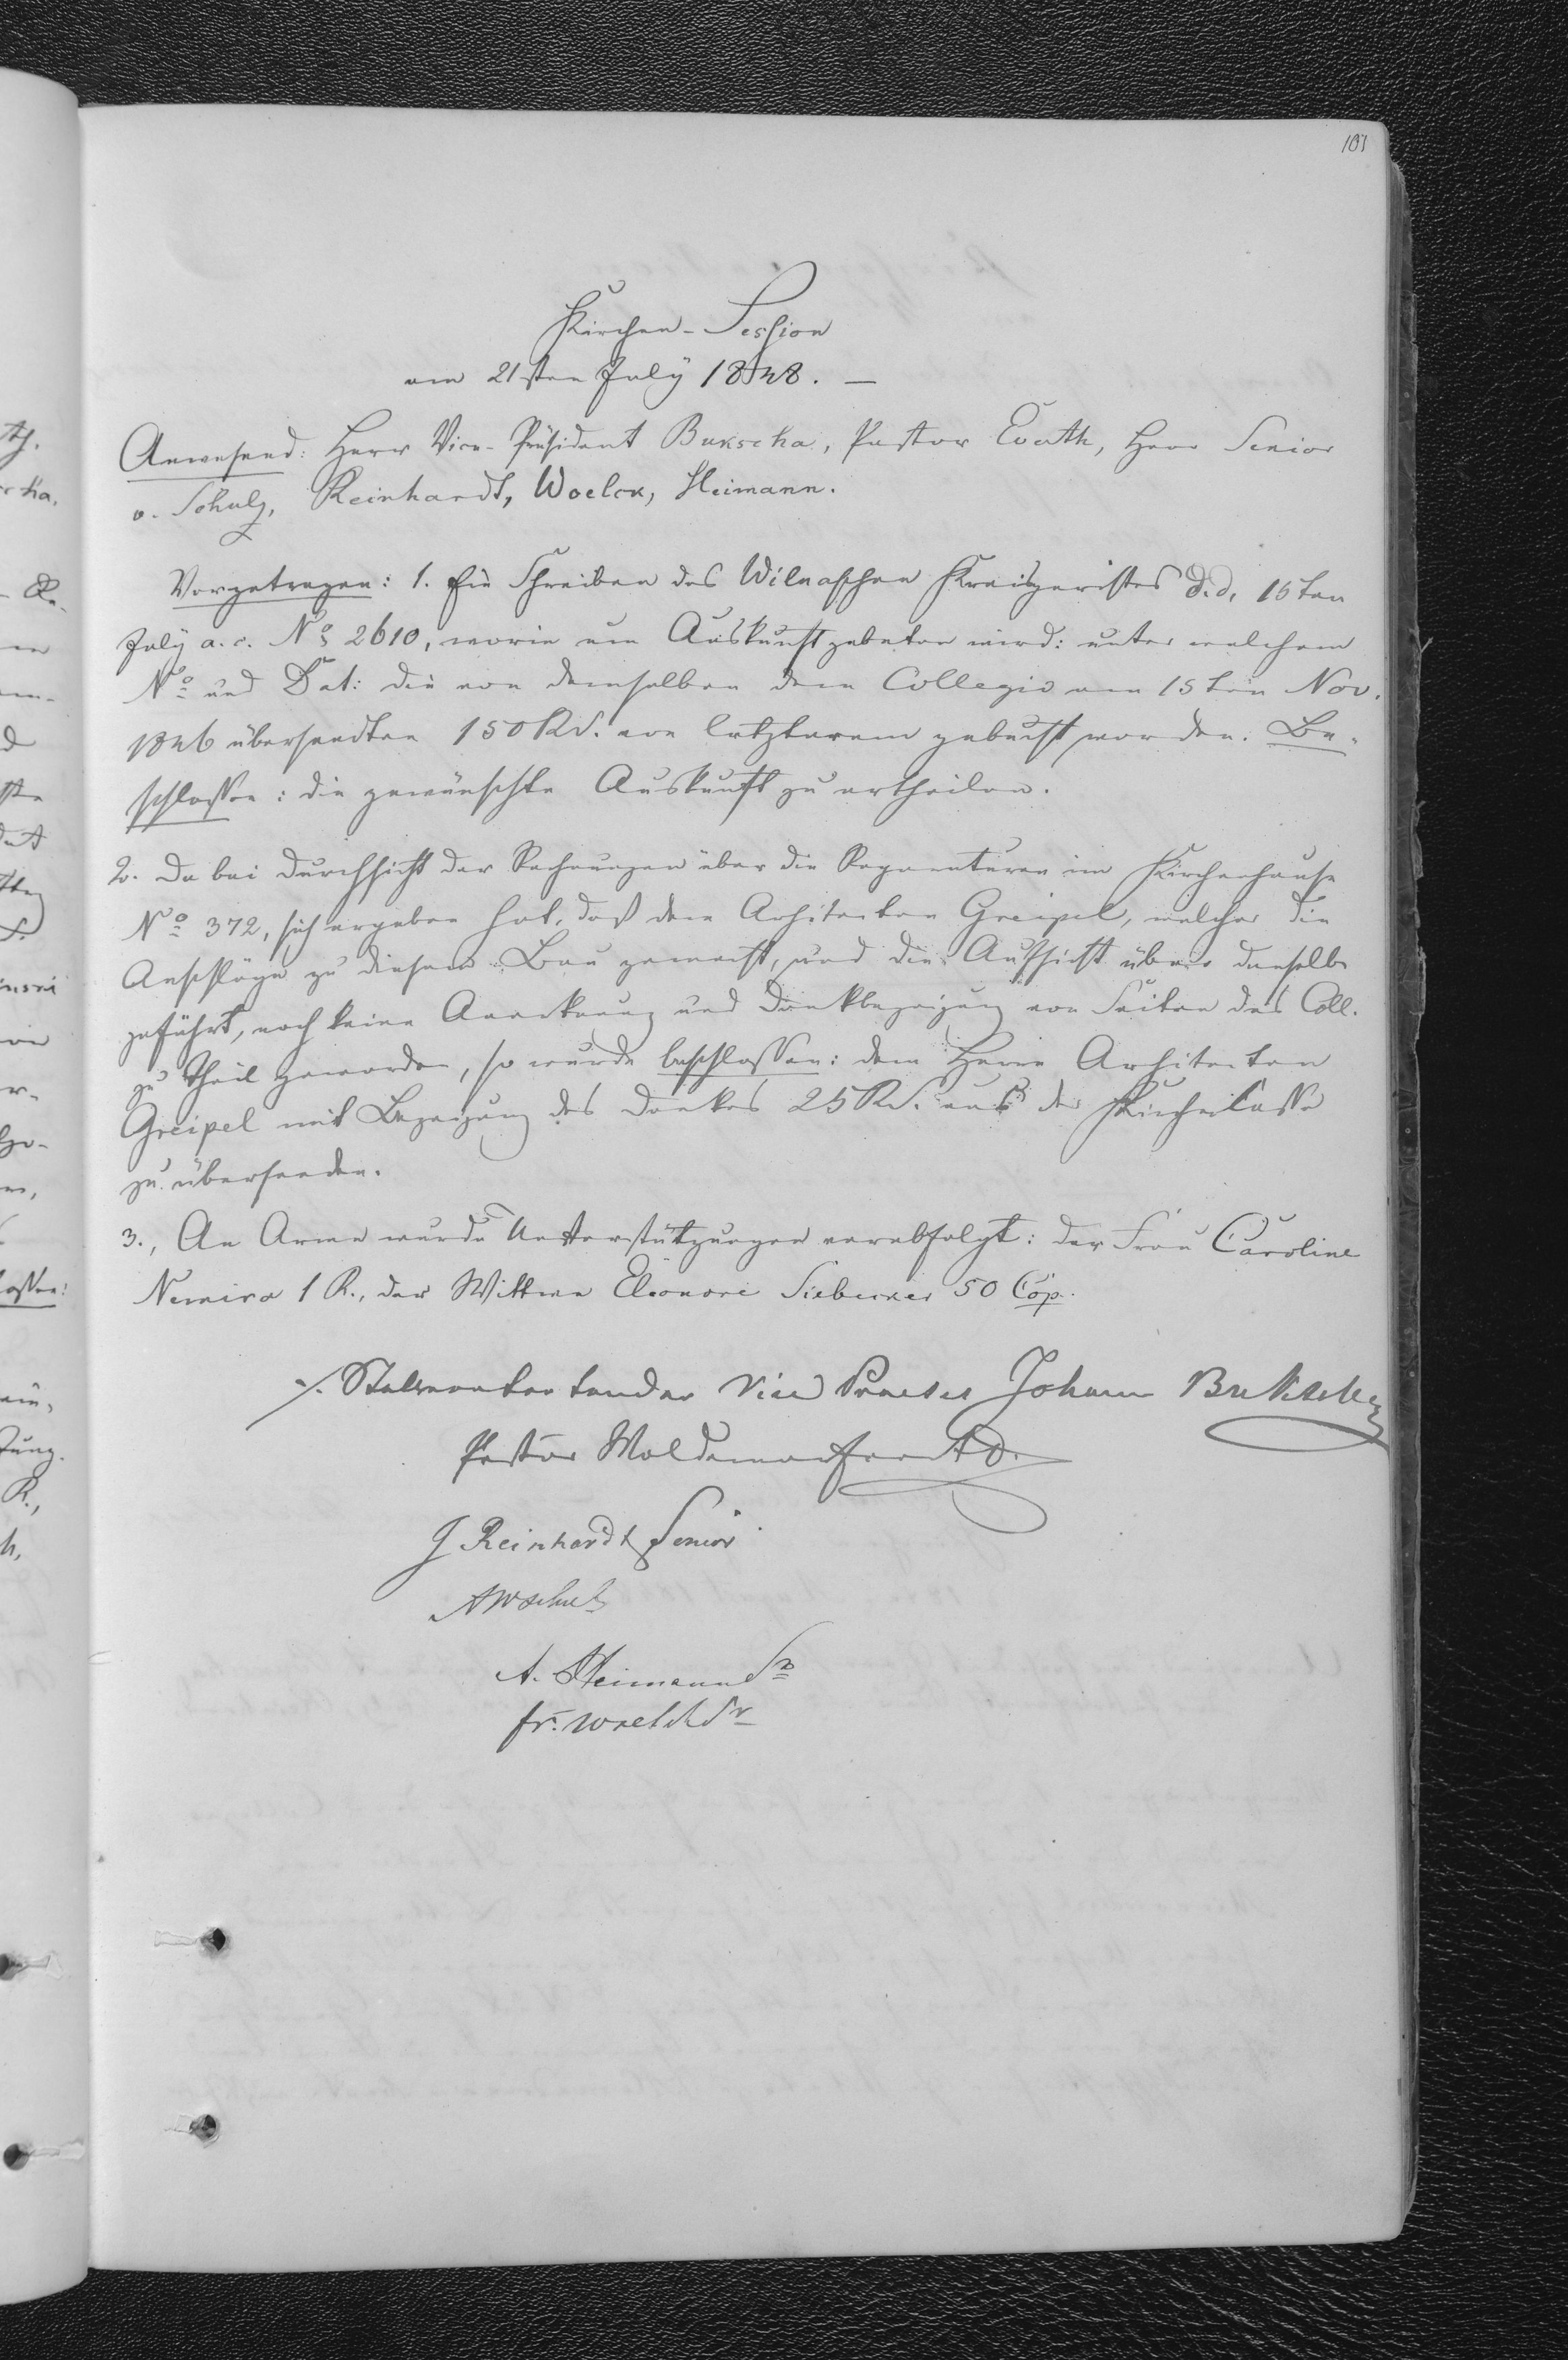 101
Kirchen-Session
am 21sten July 1848. —
Anwesend: Herr Vice-Präsident Bukscha, Pastor Everth, Herr Senior
v. Schulz, Reinhardt, Woelck, Heimann.
Vorgetragen: 1. Ein Schreiben des Wilnaschen Kreisgerichtes d.d. 15ten
July a. c. No 2610, worin um Auskunft gebeten wird: unter welchem
No und Dat: die von demselben dem Collegio am 15ten Nov.
1846 übersandten 150 RS. von letzterem gebucht worden. Be-
schlossen: die gewünschte Auskunft zu ertheilen.
2. Da bei Durchsicht der Rechnungen über die Reparaturen im Kirchenhause
No 372, sich ergeben hat, daß dem Architecten Greipel, welcher die
Anschläge zu diesem Bau gemacht, und die Aufsicht über denselben
geführt, noch keine Anerkennung und Dankbezeigung von Seiten des Coll.
zu Theil geworden, so wurde beschlossen: dem Herrn Architecten
Greipel mit Bezeigung des Dankes 25 RS. aus der Kirchencasse
zu übersenden.
3., An Arme wurde Unterstützungen verabfolgt: der Frau Caroline
Nemira 1 R., der Wittwe Eleonore 50 Cop.
Stellvertretender Vice Praeses Johann Bukscha
Pastor Woldemar Everth
J Reinhardt Senior
A W Schulz
A. Heimann Sr
Fr. Woelck Sr